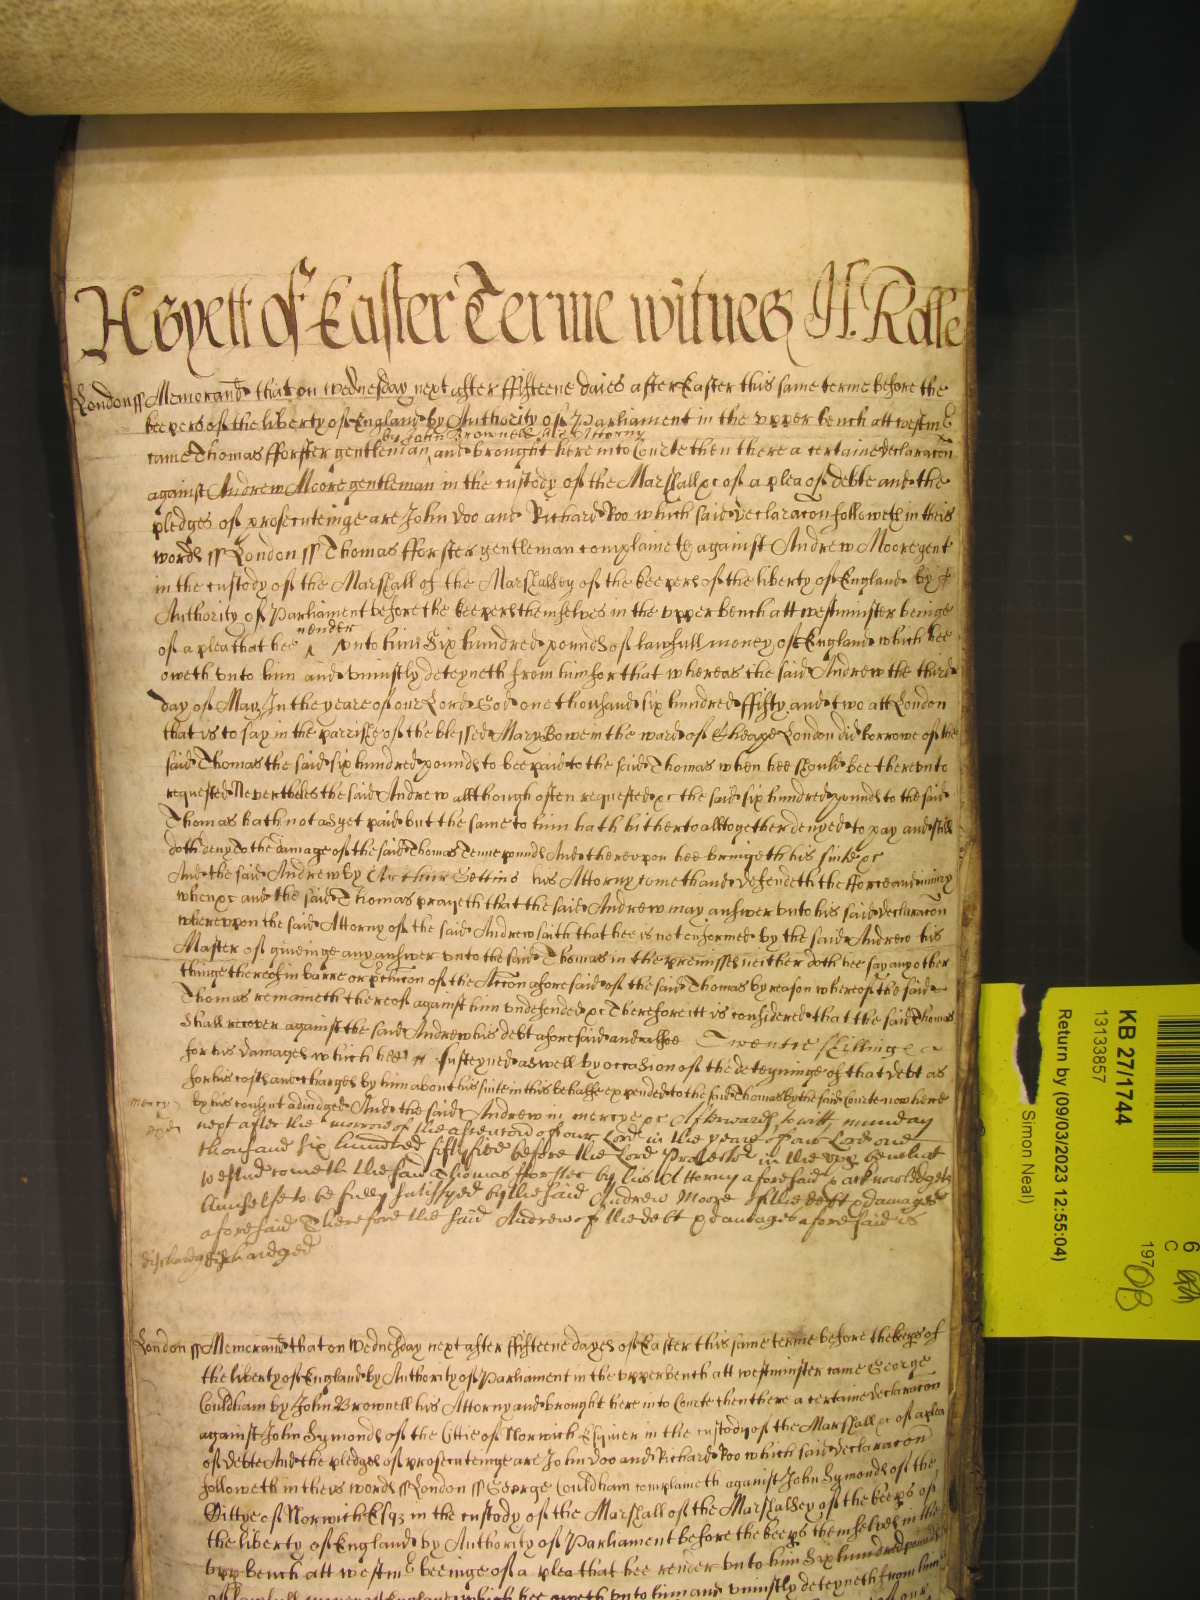 As yett of Easter Terme witnes H. Rolle
London ss Memorand that on Wednesday next after fifteene daies after Easter this same terme before the
keepers of the liberty of England by Authority of Parliament in the upper bench att westm
by John Brownell his Attorny
came Thomas fforster gentleman and brought here into Courte then there a certaine declaracon
against Andrew Moore gentleman in the custody of the Marshall &c of a plea of debte and the
pledges of prosecuteinge are John Doo and Richard Roo which said declaracon followeth in theis
words ss London ss Thomas fforster gentleman complaineth against Andrew Moore gent
in the custody of the Marshall of the Marshalsey of the keepers of the liberty of England by
Authority of Parliament before the keepers themselves in the upper bench att westminster beinge
render
of a plea that hee unto him six hundred pounds of lawfull money of England which hee
oweth unto him and uniustly deteyneth from him for that whereas the said Andrew the third
day of May In the yeare of our Lord God one thousand six hundred ffifty and two att London
that is to say in the parrishe of the blessed Mary Bowe in the ward of Cheape London did borrowe of the
said Thomas the said six hundred pounds to bee paid to the said Thomas when hee should bee thereunto
requested Neverthelesse the said Andrew allthough often requested &c the said six hundred pounds to the said
Thomas hath not as yet paid but the same to him hath hitherto alltogether denyed to pay and still
doth deny To the damage of the said Thomas Tenne pounds And thereupon hee bringeth his suite &c
And the said Andrew by Arthur his Attorny cometh and defendeth the fforce and iniury
when &c and the said Thomas prayeth that the said Andrew may answer unto his said declaracon
whereupon the said Attorny of the said Andrew saith that hee is not enformed by the said Andrew his
Master of giveinge any answer unto the said Thomas in the premisses neither doth hee say any other
thinge thereof in barre or of the Accon aforesaid of the said Thomas by reason whereof the said
Thomas remaineth thereof against him undefended &c Therefore itt is considered that the said Thomas
shall recover against the said Andrew his debt aforesaid and allsoe Twentie shillings
for his damages which hee susteyned aswell by occasion of the deteyninge of that debt as
for his costs and charges by him about his suite in this behalfe expended to the said Thomas by the said Courte now here
mercy
by his consent adiudged And the said Andrew in mercy &c Afterwards to witt munday
next after the morrow of the ascention of our Lord in the yeare of our Lord one
thousand six hundred fifty five before the Lord Protector in the upp bench att
westm cometh the said Thomas fforster by his Attorny aforesaid & acknowledgeth
himselfe to be fully satisfyed by the said Andrew Moore of the debt & damages
aforesaid Therefore the said Andrew of the debt & damages aforesaid is
discharged
London ss Memorand that on Wednesday next after ffifteene dayes of Easter this same terme before the keeps of
the liberty of England by Authority of Parliament in the upper bench att westminster came George
Couldham by John Brownell his Attorny and brought here into Courte then there a certaine declaracon
against John Symonds of the Cittie of Norwich Esquier in the custody of the Marshall &c of a plea
of debte And the pledges of prosecuteinge are John Doo and Richard Roo which said declaracon
followeth in theis words ss London ss George Couldham complaineth against John Symonds of the
Cittye of Norwich Esq in the custody of the Marshall of the Marshalsey of the keeps of
the liberty of England by Authority of Parliament before the keeps themselves in the
upp bench att westm beeinge of a plea that hee render unto him Six hundred pounds
of lawfull money of England which hee oweth unto him and uniustly deteyneth from him
KB 27/1744
13133857
Return by (09/03/2023 12:55:04)
Simon Neal)
6
C
197